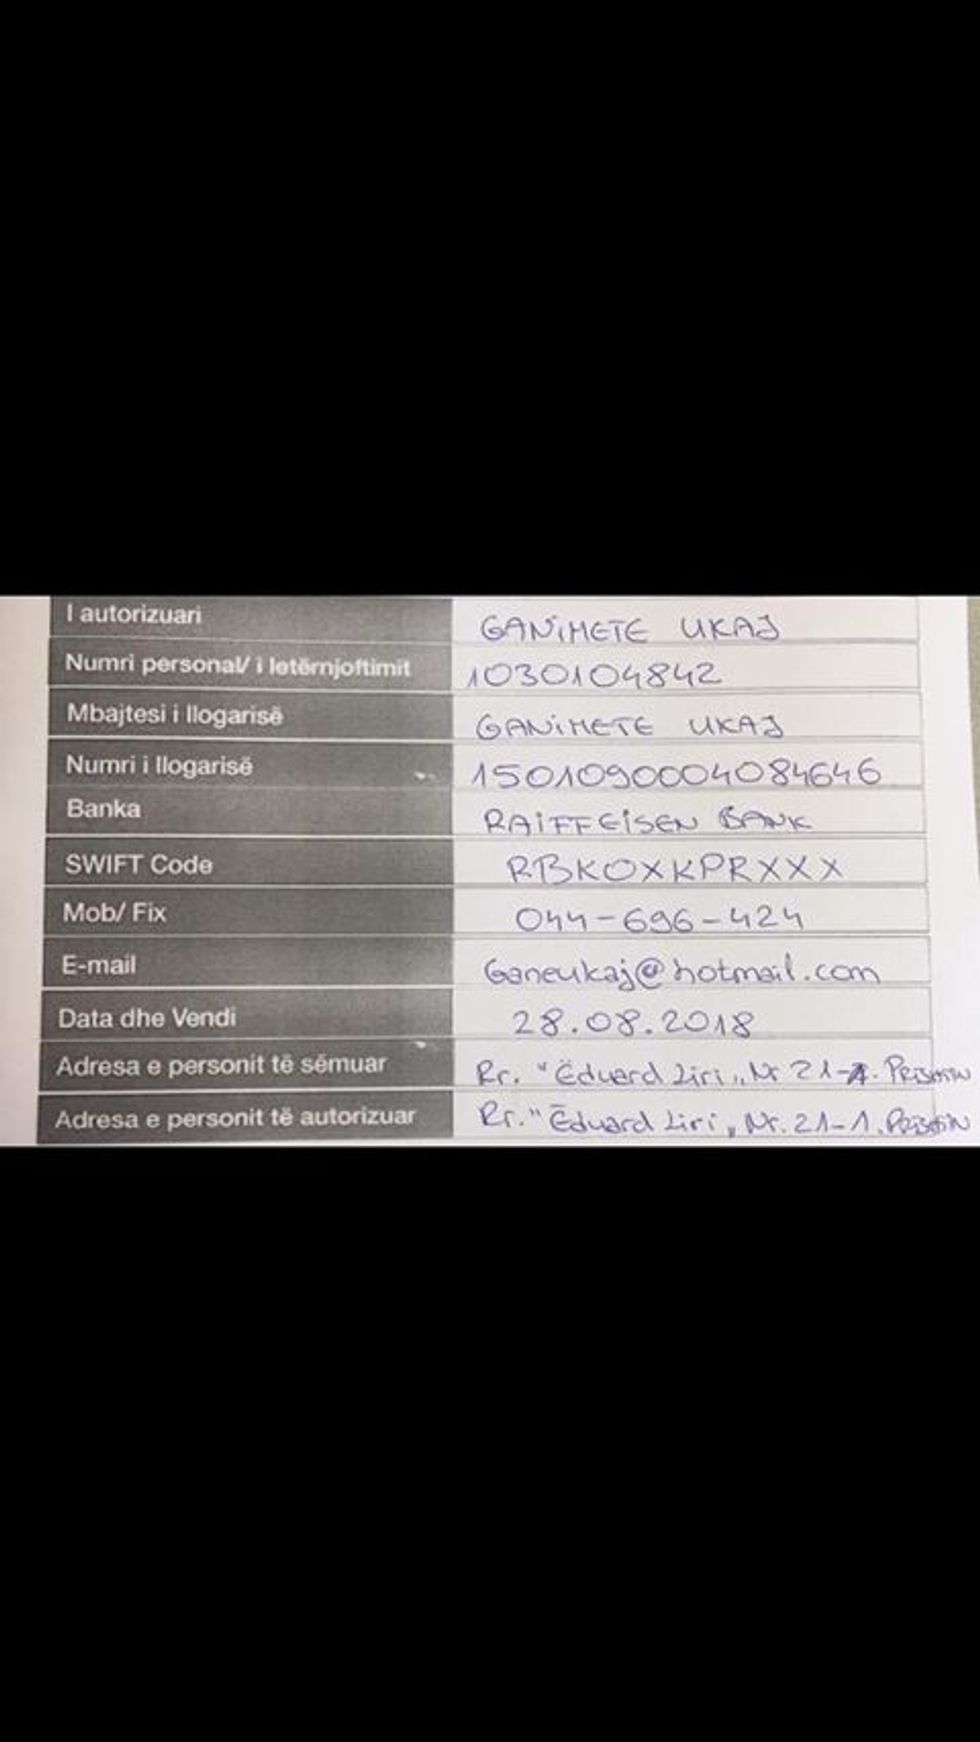 I autorizuari GANiMETE UKAJ
Numri personal/ i letërnjoftimit 1030104842
Mbajtesi i llogarisë GANiMETE UKAJ
Numri i llogarisë 1501090004084646
Banka RAiFFEiSEN BANK
SWIFT Code RBKOXKPRXXX
Mob/ Fix 044-696-424
E-mail Ganeukaj@hotmail.com
Data dhe Vendi 28.08.2018
Adresa e personit të sëmuar Rr. "Eduard Liri„ Nr 21-1.
Adresa e personit të autorizuar Rr. "Eduard Liri„ Nr. 21-1.